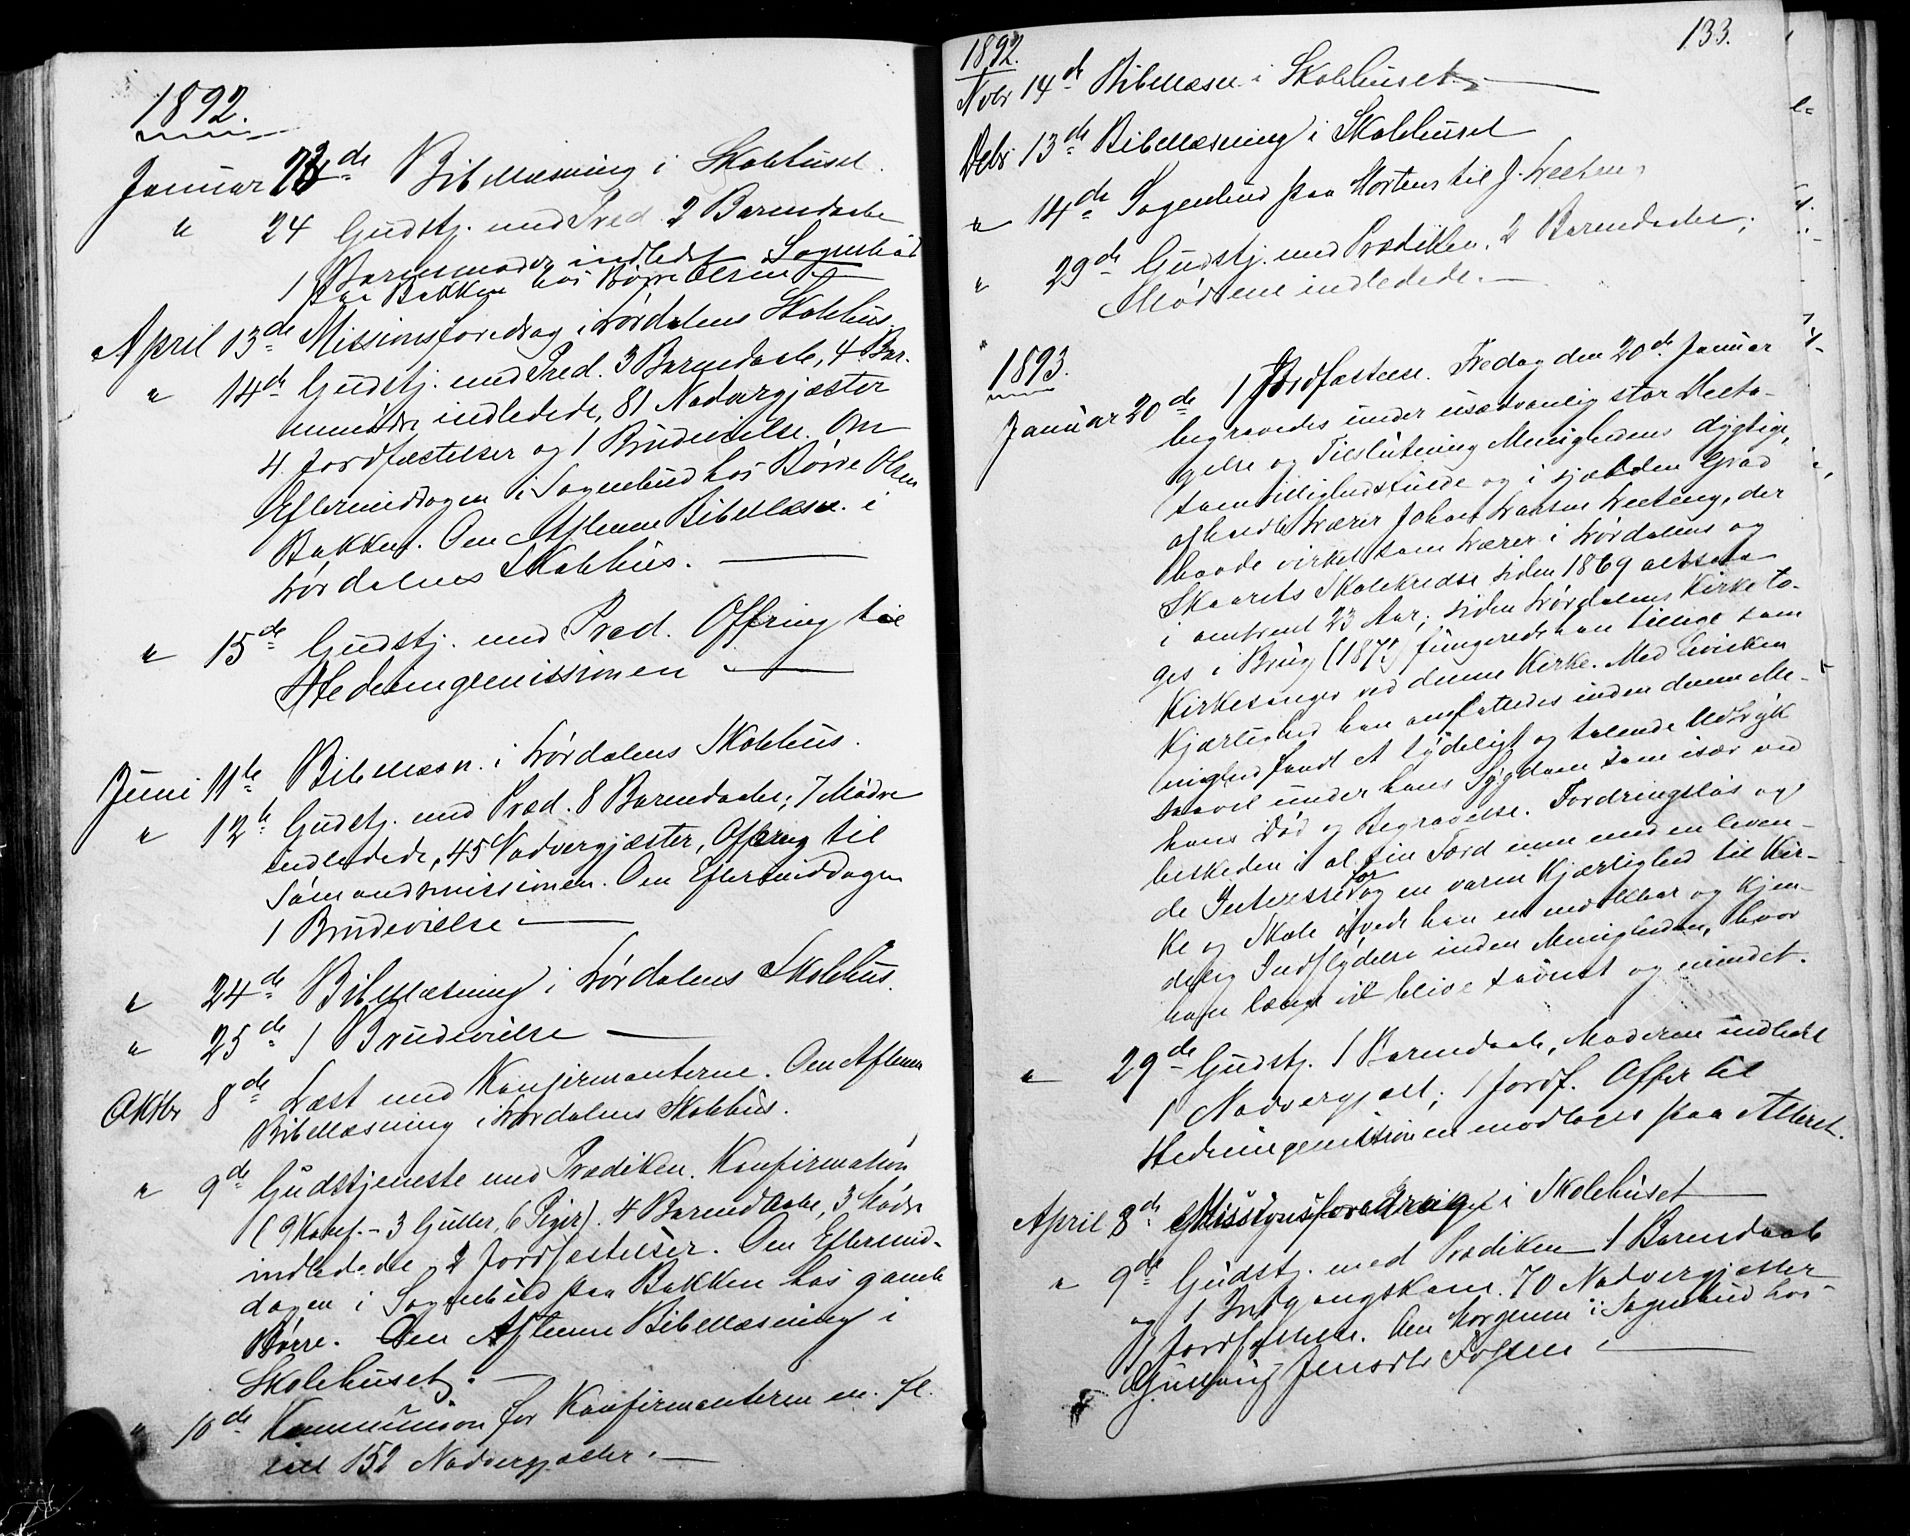 1892.
Januar 23de Bibellæsning i Skolehuset.
" 24 Gudstj. med Præd. 2 Barnedaabe
1 Barnemoder indledet Sognebud
paa Bakken hos Börre Olsen
April 13de Missionsforedrag i Sördalens Skolehus.
" 14de Gudstj. med Præd. 3 Barnedaabe, 4 Bar-
nemödre indledede, 81 Nadvergjæster
4 Jordfæstelser og 1 Brudevielse. Om
Eftermiddagen i Sognebud hos Börre Olsen
Bakken. Om Aftenen Bibellæsn. i
Sördalens Skolehus.
" 15de Gudstj. med Præd. Offring til
Hedningemissionen
Juni 11te Bibellæsn. i Sördalens Skolehus.
" 12te Gudstj. med Præd. 8 Barnedaabe; 7 Mödre
indledede, 45 Nadvergjæster, Offring til
Sömandsmissionen. Om Eftermiddagen
1 Brudevielse
" 24de Bibellæsning i Sördalens Skolehus.
" 25de 1 Brudevielse
Oktbr 8de Læst med Konfirmanterne. Om Aftenen
Bibellæsning i Sördalens Skolehus.
" 9de Gudstjeneste med Prædiken. Konfirmation
(9 Konf. - 3 Gutter, 6 Piger). 4 Barnedaabe, 3 Mödre
indledede, 2 Jordfæstelser. Om Eftermid-
dagen i Sognebud paa Bakken hos gamle
Börre. Om Aftenen Bibellæsning i
Skolehuset.
" 10de Kommunion for Konfirmanterne m. fl.
ialt 152 Nadvergjæster.
133.
1892.
Novbr 14de Bibellæsn. i Skolehuset.
Debr 13de Bibellæsning i Skolehuset
" 14de Sognebud paa Mortens til J.
" 29de Gudstj. med Prædiken. 2 Barnedaabe;
Mödrene indledede.
1893.
Januar 20de 1 Jordfæstelse. Fredag den 20de Januar
begravedes under usædvanlig stor Deelta-
gelse og Tilslutning Menighedens dygtige,
samvittighedsfulde og i sjælden Grad
afholdte Lærer Johan Larsen, der
havde virket som Lærer i Sördalens og
Skaarets Skolekredse siden 1869 altsaa
i omtrent 23 Aar; siden Sördalens Kirke to-
ges i Brug (187) fungerede han tillige som
Kirkesanger ved denne Kirke. Med hvilken
Kjærlighed han omfattedes inden denne Me-
nighed fandt et tydeligt og talende Udtryk
saavel under hans Sygdom som især ved
hans Död og Begravelse. Fordringslös og
beskeden i al sin Færd men med en leven-
de Interesse for og en varm Kjærlighed til Kir-
ke og Skole övede han en mærkbar og kjen-
delig Indflydelse inden Menigheden, hvor
han længe vil blive savnet og mindet.
" 29de Gudstj. 1 Barnedaab, Moderen indledet
1 Nadvergjæst; 1 Jordf. Offer til
Hedningemissionen modtoges paa Alteret.
April 8de Missionsforedrag i Skolehuset
" 9de Gudstj. med Prædiken 1 Barnedaab
og 1 Indgangskone. 70 Nadvergjæster
1 Jordfæstelse. Om Morgenen i Sognebud hos
Jensdtr